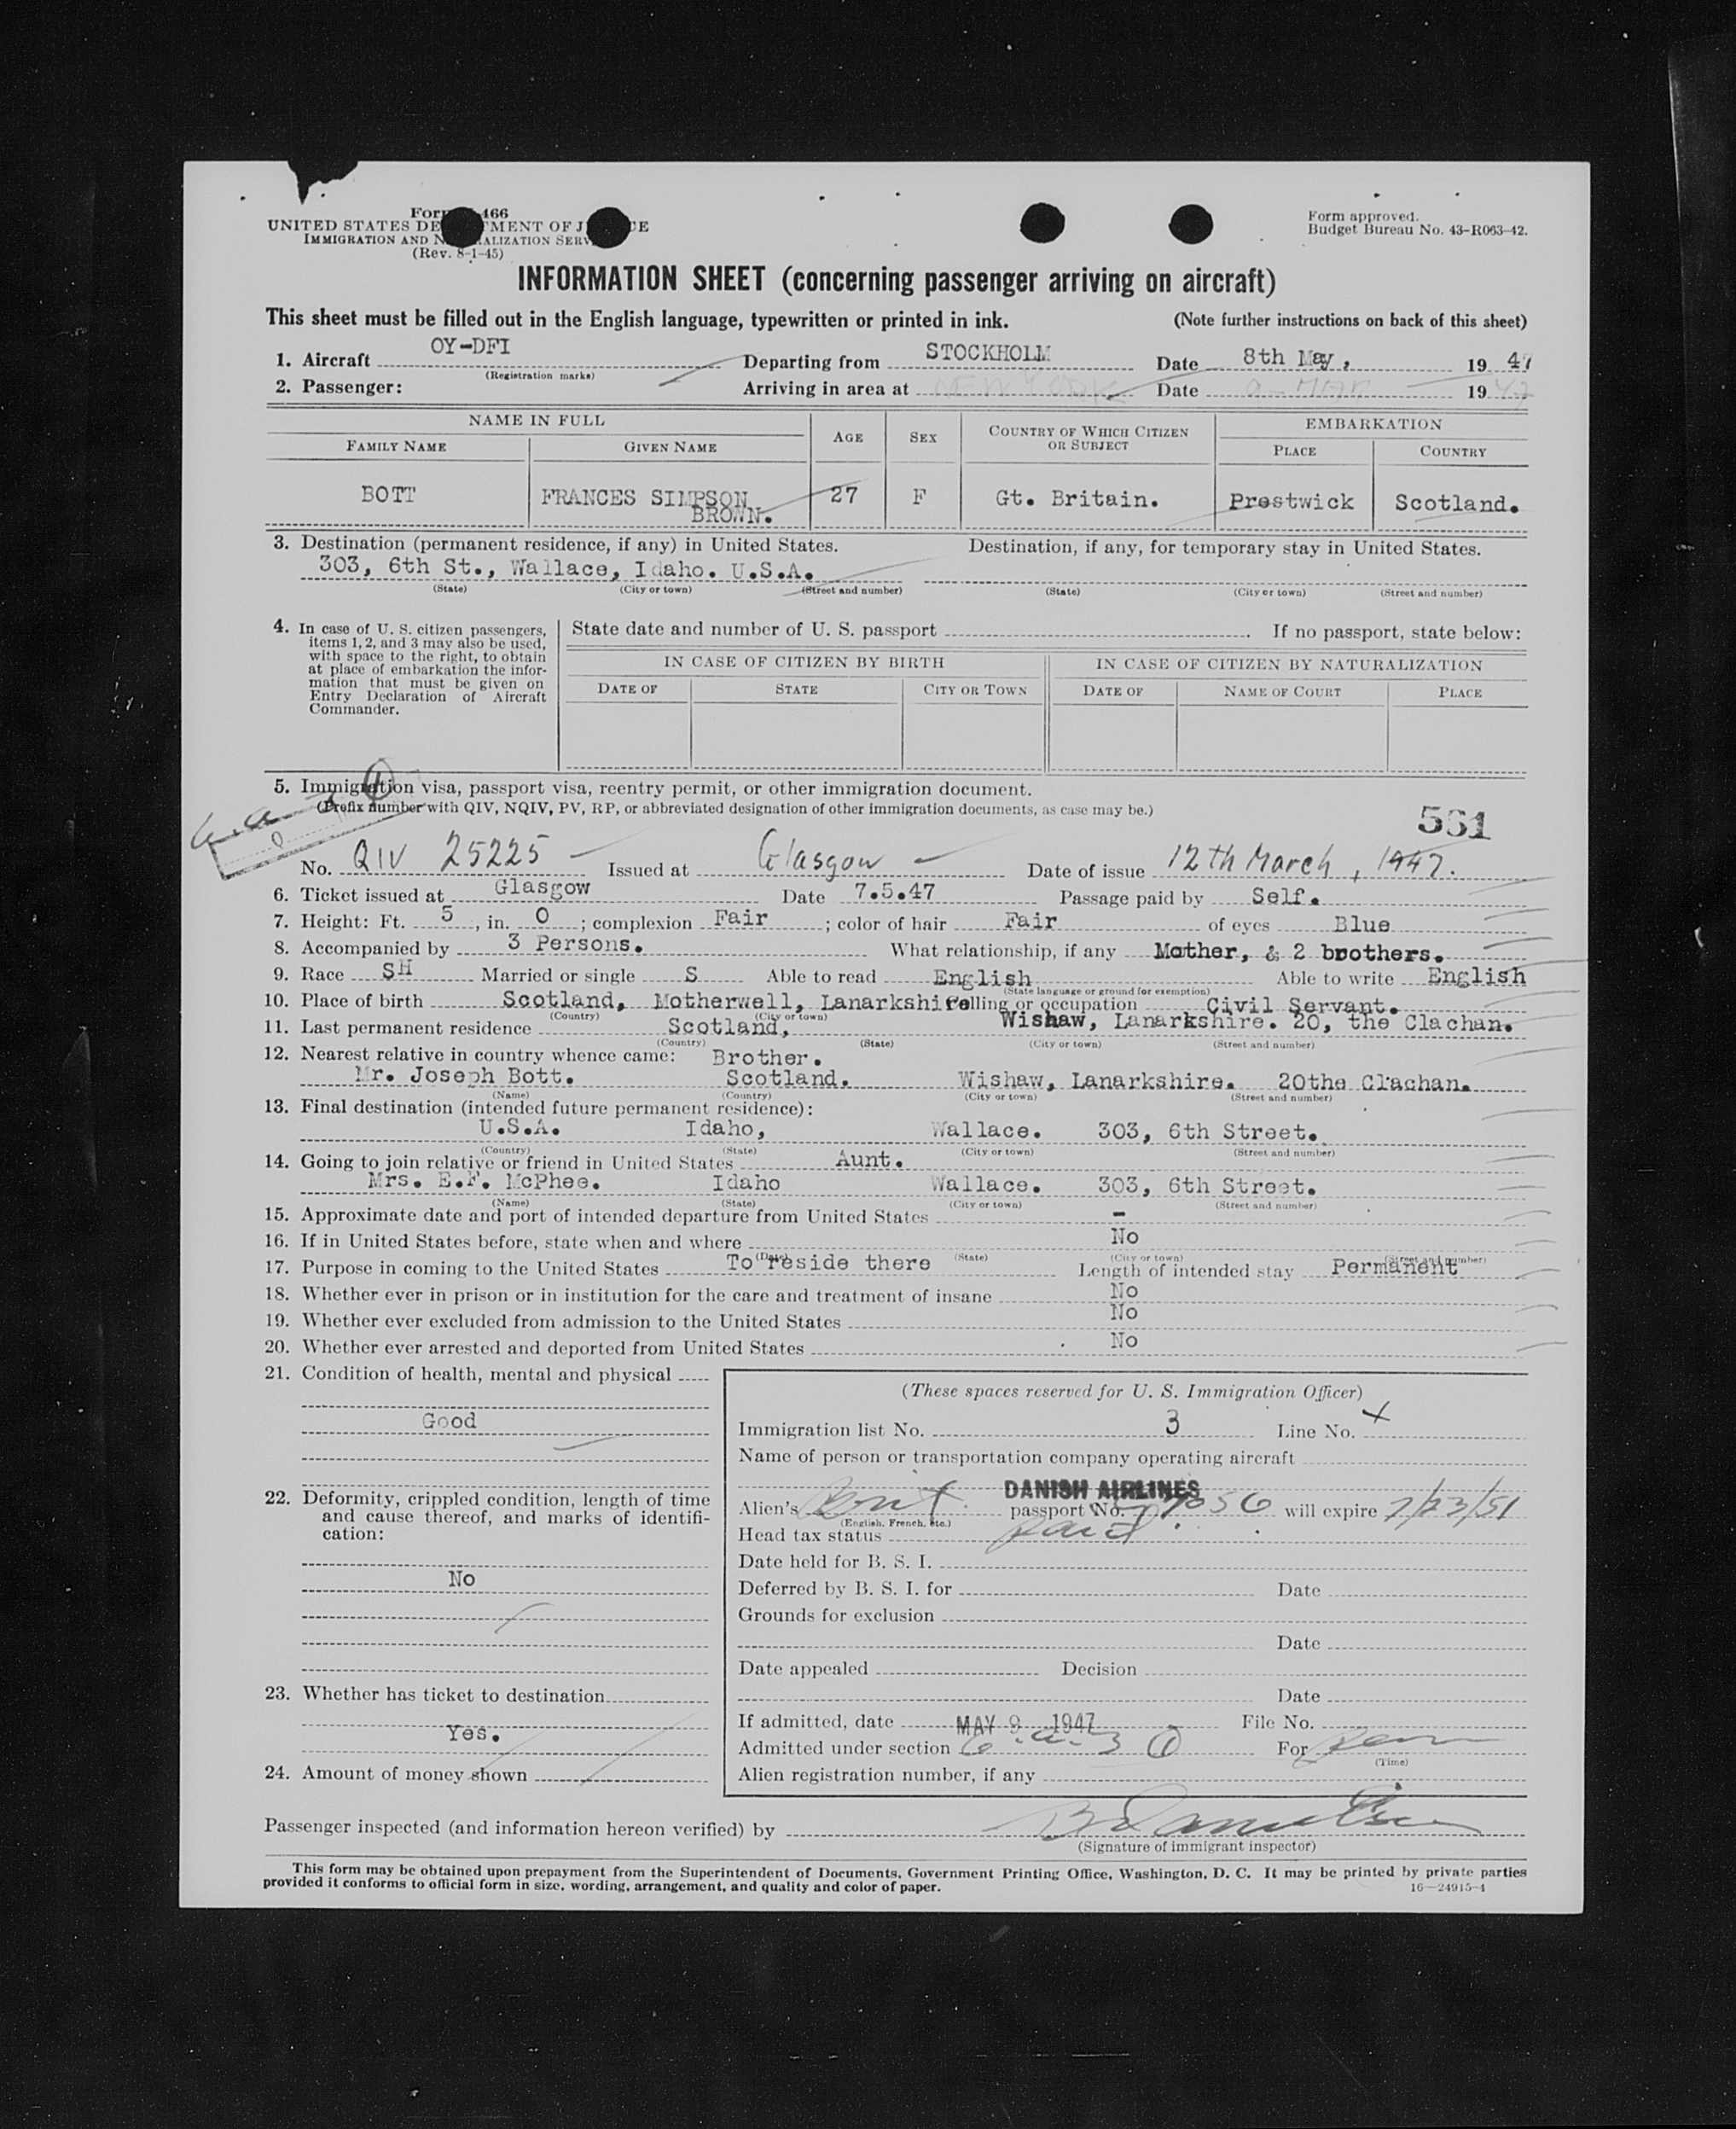 Form 466
UNITED STATES DE MENT OF J CE
IMMIGRATION AND N ALIZATION SERV
(Rev. 8-1-45)
Form approved.
Budget Bureau No. 43-R063-42.
INFORMATION SHEET (concerning passenger arriving on aircraft)
This sheet must be filled out in the English language, typewritten or printed in ink. (Note further instructions on back of this sheet)
1. Aircraft OY-DFI Departing from STOCKHOLM Date 8th May, 19 47
(Registration marks)
2. Passenger: Arriving in area at NEW YORK Date 19 47
NAME IN FULL AGE SEX COUNTRY OF WHICH CITIZEN OR SUBJECT EMBARKATION
FAMILY NAME GIVEN NAME PLACE COUNTRY
BOTT FRANCES SIMPSON BROWN. 27 F Gt. Britain. Prestwick Scotland.
3. Destination (permanent residence, if any) in United States. Destination, if any, for temporary stay in United States.
303, 6th St., Wallace, Idaho. U.S.A.
(State) (City or town) (Street and number) (State) (City or town) (Street and number)
4. In case of U. S. citizen passengers, items 1, 2, and 3 may also be used, with space to the right, to obtain at place of embarkation the information that must be given on Entry Declaration of Aircraft Commander.
State date and number of U. S. passport . If no passport, state below:
IN CASE OF CITIZEN BY BIRTH IN CASE OF CITIZEN BY NATURALIZATION
DATE OF STATE CITY OR TOWN DATE OF NAME OF COURT PLACE
5. Immigration visa, passport visa, reentry permit, or other immigration document.
(Prefix number with QIV, NQIV, PV, RP, or abbreviated designation of other immigration documents, as case may be.)
561
No. QIV 25225 Issued at Glasgow Date of issue 12th March, 1947.
6. Ticket issued at Glasgow Date 7.5.47 Passage paid by Self.
7. Height: Ft. 5, in. 0; complexion Fair; color of hair Fair of eyes Blue
8. Accompanied by 3 Persons. What relationship, if any Mother, & 2 brothers.
9. Race SH Married or single S Able to read English Able to write English
(State language or ground for exemption)
10. Place of birth Scotland, Motherwell, Lanarkshire Calling or occupation Civil Servant.
(Country) (City or town)
11. Last permanent residence Scotland, Wishaw, Lanarkshire. 20, the Clachan.
(Country) (State) (City or town) (Street and number)
12. Nearest relative in country whence came: Brother.
Mr. Joseph Bott. Scotland. Wishaw, Lanarkshire. 20the Clachan.
(Name) (Country) (City or town) (Street and number)
13. Final destination (intended future permanent residence):
U.S.A. Idaho, Wallace. 303, 6th Street.
(Country) (State) (City or town) (Street and number)
14. Going to join relative or friend in United States Aunt.
Mrs. E.F. McPhee. Idaho Wallace. 303, 6th Street.
(Name) (State) (City or town) (Street and number)
15. Approximate date and port of intended departure from United States -
16. If in United States before, state when and where No
(Date) (State) (City or town) (Street and number)
17. Purpose in coming to the United States To reside there Length of intended stay Permanent
18. Whether ever in prison or in institution for the care and treatment of insane No
19. Whether ever excluded from admission to the United States No
20. Whether ever arrested and deported from United States No
21. Condition of health, mental and physical
Good
22. Deformity, crippled condition, length of time and cause thereof, and marks of identification:
No
23. Whether has ticket to destination
Yes.
24. Amount of money shown
(These spaces reserved for U. S. Immigration Officer)
Immigration list No. 3 Line No. x
Name of person or transportation company operating aircraft
DANISH AIRLINES
Alien's Brit passport No. will expire 7/23/51
(English, French, etc.)
Head tax status paid
Date held for B. S. I.
Deferred by B. S. I. for Date
Grounds for exclusion
Date
Date appealed Decision
Date
If admitted, date MAY 9 1947 File No.
Admitted under section 6-a-3 (1) For perm
(Time)
Alien registration number, if any
Passenger inspected (and information hereon verified) by
(Signature of immigrant inspector)
This form may be obtained upon prepayment from the Superintendent of Documents, Government Printing Office, Washington, D. C. It may be printed by private parties
provided it conforms to official form in size, wording, arrangement, and quality and color of paper.
16—24915-1